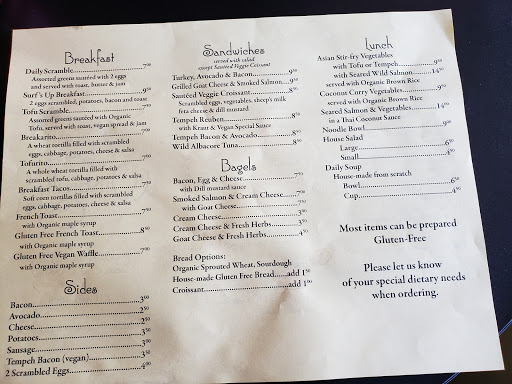 Breakfast
Daily Scramble 7⁰⁰
Assorted greens sautéed with 2 eggs
and served with toast, butter & jam
Surf's Up Breakfast 9⁰⁰
2 eggs scrambled, potatoes, bacon and toast
Tofu Scramble 7⁵⁰
Assorted greens sautéed with Organic
Tofu, served with toast, vegan spread & jam
Breakarito 7⁰⁰
A wheat tortilla filled with scrambled
eggs, cabbage, potatoes, cheese & salsa
Tofurito 7⁵⁰
A whole wheat tortilla filled with
scrambled tofu, cabbage, potatoes & salsa
Breakfast Tacos 7⁵⁰
Soft corn tortillas filled with scrambled
eggs, cabbage, potatoes, cheese & salsa
French Toast 7⁵⁰
with Organic maple syrup
Gluten Free French Toast 8⁵⁰
with Organic maple syrup
Gluten Free Vegan Waffle 7⁰⁰
with Organic maple syrup
Sides
Bacon 3⁰⁰
Avocado 2⁵⁰
Cheese 2⁵⁰
Potatoes 3⁵⁰
Sausage 3⁰⁰
Tempeh Bacon (vegan) 3⁵⁰
2 Scrambled Eggs 4⁰⁰
Sandwiches
served with salad
except Sautéed Veggie Croissant
Turkey, Avocado & Bacon 9⁵⁰
Grilled Goat Cheese & Smoked Salmon 9⁵⁰
Sautéed Veggie Croissant 8⁵⁰
Scrambled eggs, vegetables, sheep's milk
feta cheese & dill mustard
Tempeh Reuben 8⁵⁰
with Kraut & Vegan Special Sauce
Tempeh Bacon & Avocado 8⁵⁰
Wild Albacore Tuna 8⁵⁰
Bagels
Bacon, Egg & Cheese 7⁰⁰
with Dill mustard sauce
Smoked Salmon & Cream Cheese 7⁰⁰
with Goat Cheese 7⁵⁰
Cream Cheese 3⁰⁰
Cream Cheese & Fresh Herbs 3⁵⁰
Goat Cheese & Fresh Herbs 4⁵⁰
Bread Options:
Organic Sprouted Wheat, Sourdough
House-made Gluten Free Bread add 1⁵⁰
Croissant add 1⁰⁰
Lunch
Asian Stir-fry Vegetables
with Tofu or Tempeh 9⁵⁰
with Seared Wild Salmon 14⁰⁰
served with Organic Brown Rice
Coconut Curry Vegetables 9⁵⁰
served with Organic Brown Rice
Seared Salmon & Vegetables 14⁰⁰
in a Thai Coconut Sauce
Noodle Bowl 9⁵⁰
House Salad
Large 6⁵⁰
Small 4⁵⁰
Daily Soup
House-made from scratch
Bowl 6⁵⁰
Cup 4⁵⁰
Most items can be prepared
Gluten-Free
Please let us know
of your special dietary needs
when ordering.